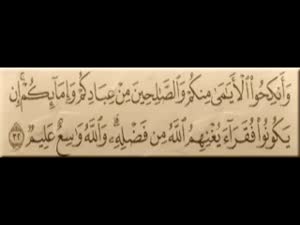 وَأَنكِحُوا۟ ٱلْأَيَـٰمَىٰ مِنكُمْ وَٱلصَّـٰلِحِينَ مِنْ عِبَادِكُمْ وَإِمَآئِكُمْ ۚ إِن
يَكُونُوا۟ فُقَرَآءَ يُغْنِهِمُ ٱللَّهُ مِن فَضْلِهِۦ ۗ وَٱللَّهُ وَٰسِعٌ عَلِيمٌ ٣٢